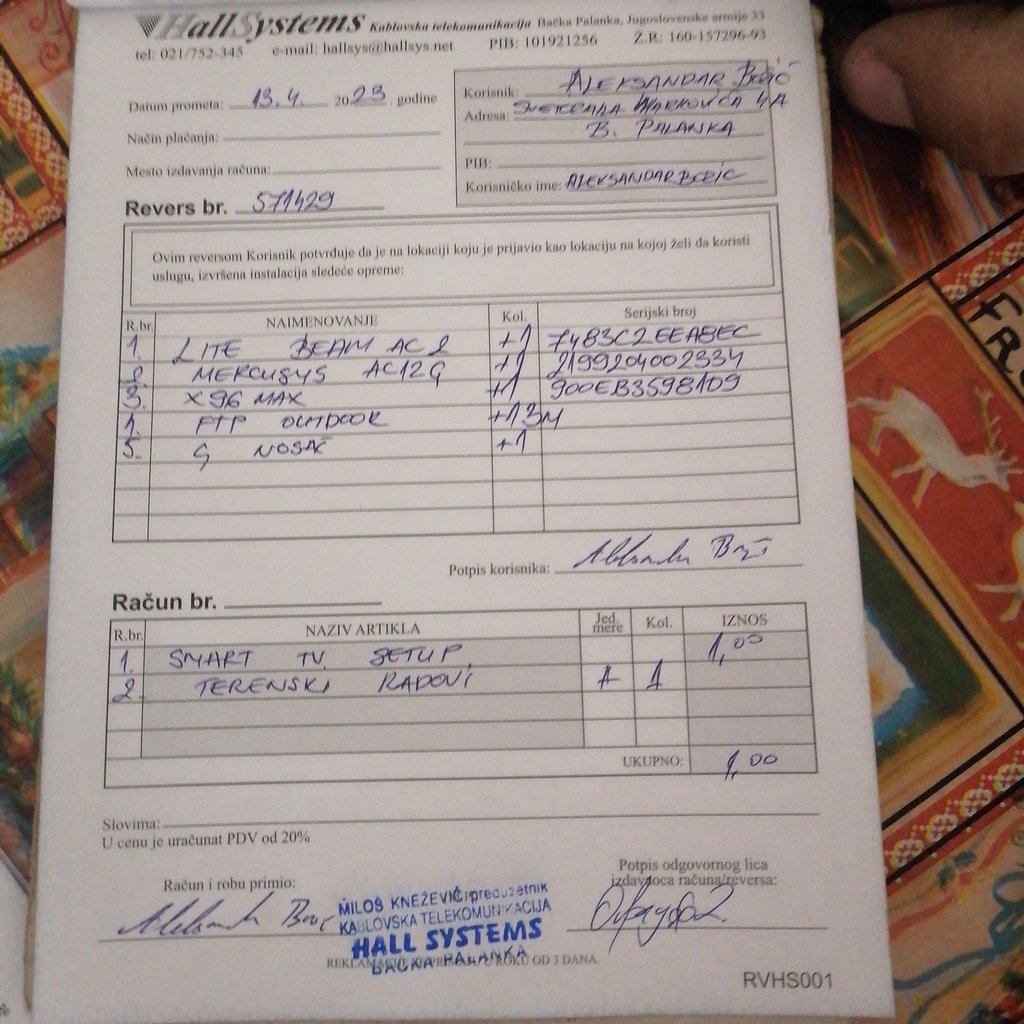 HallSystems Kablovska telekomunikacija Bačka Palanka, Jugoslovenske armije 33
tel: 021/752-345 e-mail: hallsys@hallsys.net PIB: 101921256 Ž.R: 160-157296-93
Datum prometa: 13.4. 2023. godine
Način plaćanja:
Mesto izdavanja računa:
Revers br. 571429
Korisnik: ALEKSANDAR
Adresa: MARKOVIĆA 4A
B. PALANKA
PIB:
Korisničko ime: ALEKSANDAR
Ovim reversom Korisnik potvrđuje da je na lokaciji koju je prijavio kao lokaciju na kojoj želi da koristi
uslugu, izvršena instalacija sledeće opreme:
R.br. NAIMENOVANJE Kol. Serijski broj
1. LITE BEAM AC 2 +1 7483C2EEABEC
2. MERCUSYS AC12G +1 2199204002334
3. X96 MAX +1 900EB3598109
4. FTP OUTDOOR +13M
5. G NOSAČ +1
Potpis korisnika:
Račun br.
R.br. NAZIV ARTIKLA Jed. mere Kol. IZNOS
1. SMART TV SETUP 1,00
2. TERENSKI RADOVI 1
UKUPNO: 1,00
Slovima:
U cenu je uračunat PDV od 20%
Račun i robu primio:
Potpis odgovornog lica
izdavaoca računa/reversa:
MILOŠ KNEŽEVIĆ preduzetnik
KABLOVSKA TELEKOMUNIKACIJA
HALL SYSTEMS
BAČKA PALANKA
ROKU OD 3 DANA.
RVHS001